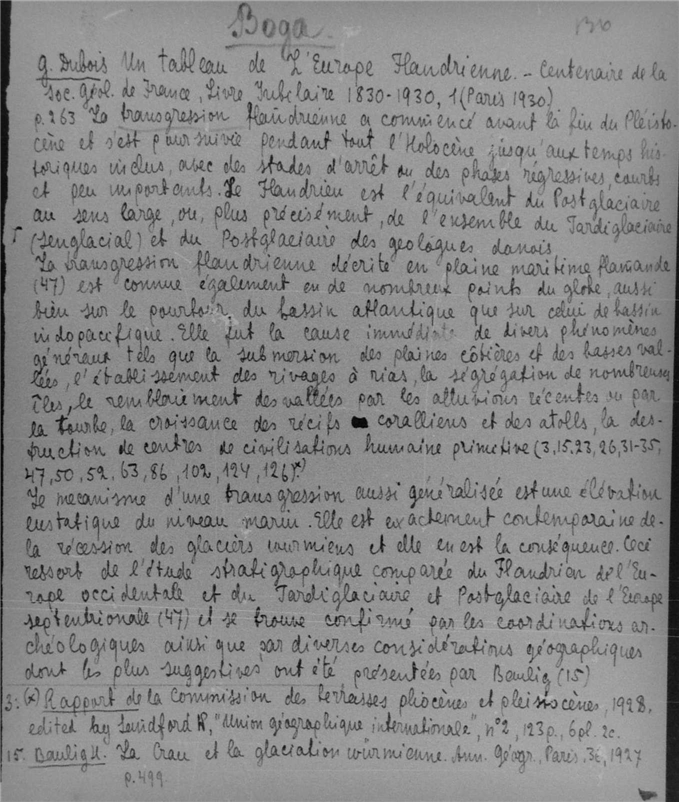 Boga.
130
G. Dubois Un tableau de L'Europe Flandrienne. - Centenaire de la
Soc. Géol. de France, Livre Jubilaire 1830-1930, 1 (Paris 1930)
p. 263 La transgression flandrienne a commencé avant la fin du Pleisto-
cène et s'est poursuivie pendant tout l'Holocène jusqu'aux temps his-
toriques inclus, avec des stades d'arrêt ou des phases régressives, courts
et peu importants. Le Flandrien est l'équivalent du Postglaciaire
au sens large, ou, plus précisément, de l'ensemble du Tardiglaciaire
(senglacial) et du Postglaciaire des géologues danois.
La transgression flandrienne décrite en plaine maritime flamande
(47) est connue également en de nombreux points du globe, aussi
bien sur le pourtour du bassin atlantique que sur celui de bassin
indopacifique. Elle fut la cause immédiate de divers phénomènes
généraux tels que la submersion des plaines côtières et des basses val-
lées, l'établissement des rivages à rias, la ségrégation de nombreuses
îles, le remblaiement des vallées par les alluvions récentes ou par
la tourbe, la croissance des récifs coralliens et des atolls, la des-
truction de centres de civilisations humaine primitive (3, 15, 23, 26, 31-35,
47, 50, 52, 63, 86, 102, 124, 126).x)
Le mecanisme d'une transgression aussi généralisée est une élévation
eustatique du niveau marin. Elle est exactement contemporaine de
la récession des glaciers würmiens et elle en est la conséquence. Ceci
ressort de l'étude stratigraphique comparée du Flandrien de l'Eu-
rope occidentale et du Tardiglaciaire et Postglaciaire de l'Europe
septentrionale (47) et se trouve confirmé par les coordinations ar-
chéologiques ainsi que par diverses considérations géographiques
dont les plus suggestives ont été présentées par Baulig (15)
3: (x) Rapport de la Commission des terrasses pliocènes et pleistocènes, 1928,
edited by Sandford, "Union géographique internationale", n°2, 123p., 6pl. 2c.
15. Baulig H. La Crau et la glaciation würmienne. Ann. Géogr., Paris, 36, 1927
p. 499.